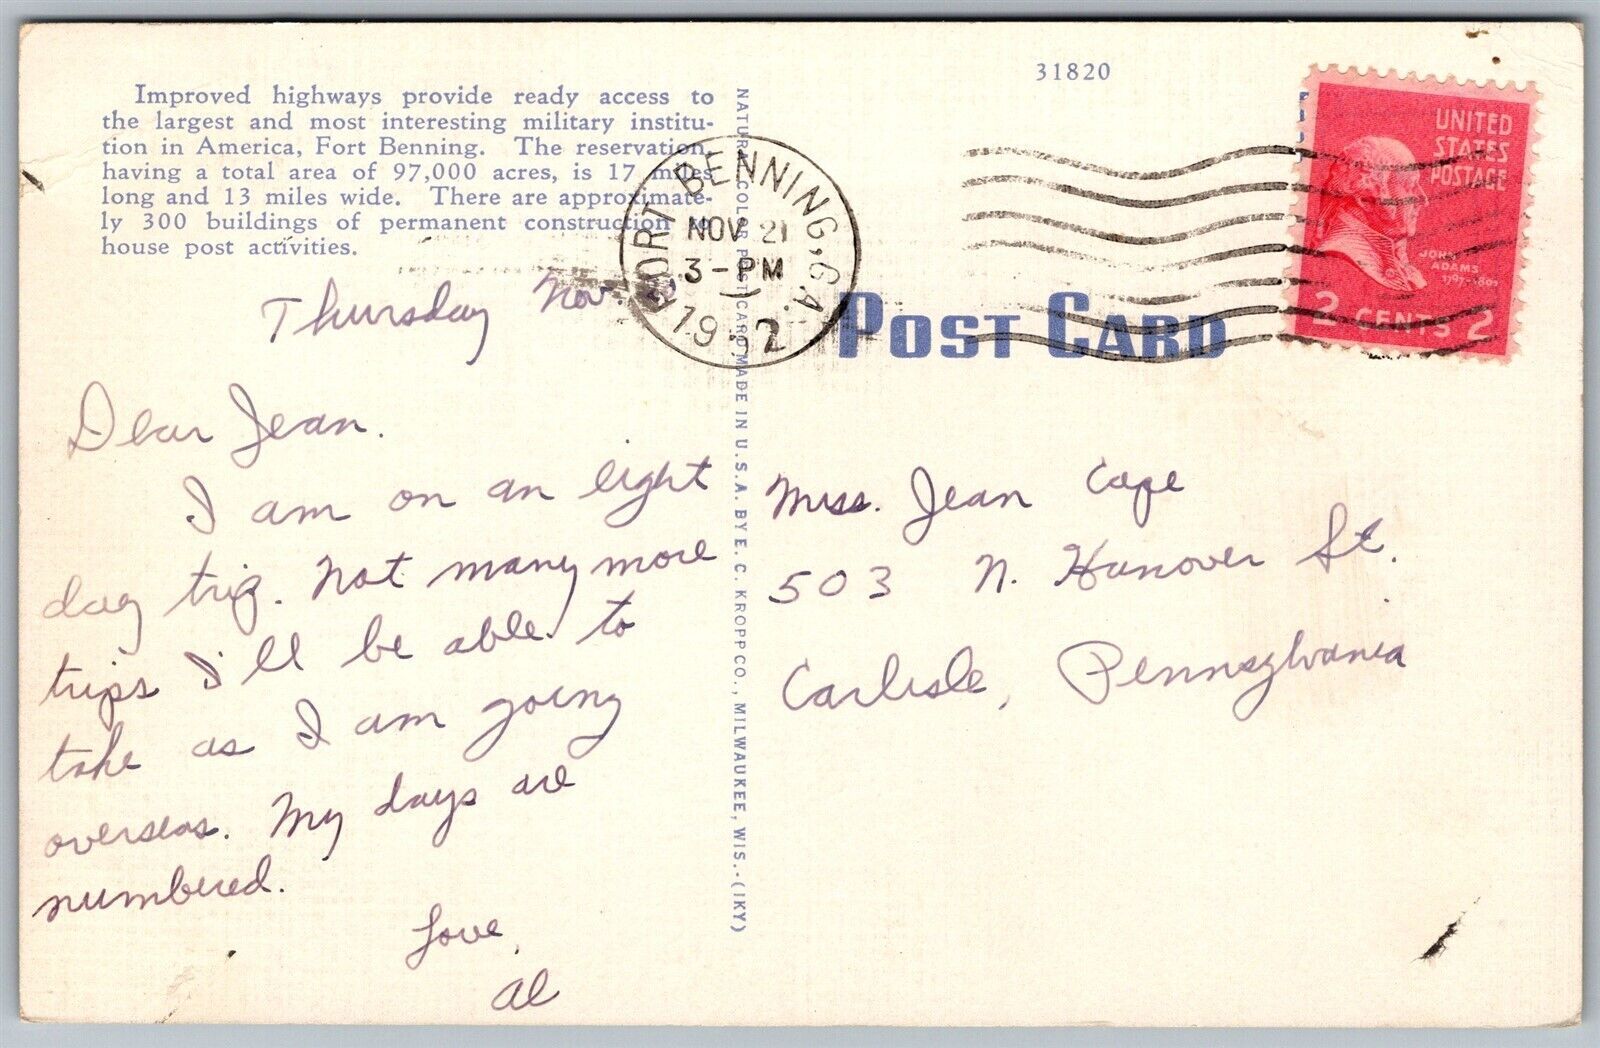 Improved highways provide ready access to
the largest and most interesting military institu-
tion in America, Fort Benning. The reservation,
having a total area of 97,000 acres, is 17 miles
long and 13 miles wide. There are approximate-
ly 300 buildings of permanent construction to
house post activities.
Thursday Nov.
Dear Jean.
I am on an eight
day trip. Not many more
trips I'll be able to
take as I am going
overseas. My days are
numbered.
Love,
Al
NATURAL COLOR POST CARD MADE IN U.S.A. BY E. C. KROPP CO., MILWAUKEE, WIS.-(IKY)
FORT BENNING, GA.
NOV 21
3-PM
1952
31820
POST CARD
UNITED
STATES
POSTAGE
JOHN
ADAMS
1797-1801
2 CENTS 2
Miss. Jean Cape
503 N. Hanover St.
Carlisle, Pennsylvania